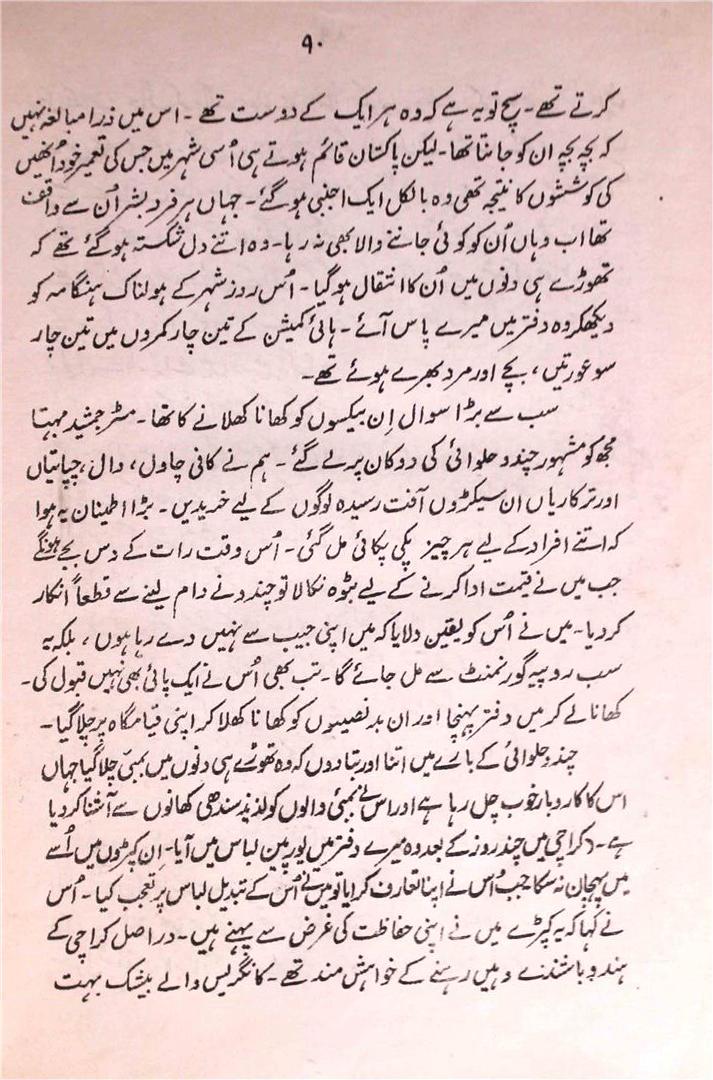 ۹۰
کرتے تھے۔ سچ تو یہ ہے کہ وہ ہر ایک کے دوست تھے۔ اس میں ذرا مبالغہ نہیں
کہ بچہ بچہ ان کو جانتا تھا۔ لیکن پاکستان قائم ہوتے ہی اُسی شہر میں جس کی تعمیر خود اُنھیں
کی کوششوں کا نتیجہ تھی وہ بالکل ایک اجنبی ہو گئے۔ جہاں ہر فرد بشر اُن سے واقف
تھا اب وہاں اُن کو کوئی جاننے والا بھی نہ رہا۔ وہ اتنے دل شکستہ ہو گئے تھے کہ
تھوڑے ہی دنوں میں اُن کا انتقال ہو گیا۔ اُس روز شہر کے ہولناک ہنگامہ کو
دیکھکر وہ دفتر میں میرے پاس آئے۔ ہائی کمیشن کے تین چار کمروں میں تین چار
سو عورتیں، بچے اور مرد بھرے ہوئے تھے۔
سب سے بڑا سوال اِن بیکسوں کو کھانا کھلانے کا تھا۔ مسٹر جمشید مہتا
مجھ کو مشہور چندو حلوائی کی دوکان پر لے گئے۔ ہم نے کافی چاول، دال، چپاتیاں
اور ترکاریاں ان سیکڑوں آفت رسیدہ لوگوں کے لیے خریدیں۔ بڑا اطمینان یہ ہوا
کہ اتنے افراد کے لیے ہر چیز پکی پکائی مل گئی۔ اُس وقت رات کے دس بجے ہونگے
جب میں نے قیمت ادا کرنے کے لیے بٹوہ نکالا تو چندو نے دام لینے سے قطعاً انکار
کر دیا۔ میں نے اُس کو یقین دلایا کہ میں اپنی جیب سے نہیں دے رہا ہوں، بلکہ یہ
سب روپیہ گورنمنٹ سے مل جائے گا۔ تب بھی اُس نے ایک پائی بھی نہیں قبول کی۔
کھانا لے کر میں دفتر پہنچا اور ان بدنصیبوں کو کھانا کھلا کر اپنی قیامگاہ پر چلا گیا۔
چندو حلوائی کے بارے میں اتنا اور بتادوں کہ وہ تھوڑے ہی دنوں میں بمبئی چلا گیا جہاں
اس کا کاروبار خوب چل رہا ہے اور اس نے بمبئی والوں کو لذیذ سندھی کھانوں سے آشنا کر دیا
ہے۔ کراچی میں چند روز کے بعد وہ میرے دفتر میں یورپین لباس میں آیا۔ اِن کپڑوں میں اُسے
میں پہچان نہ سکا جب اُس نے اپنا تعارف کرایا تو میں نے اُس کے تبدیل لباس پر تعجب کیا۔ اُس
نے کہا کہ یہ کپڑے میں نے اپنی حفاظت کی غرض سے پہنے ہیں۔ دراصل کراچی کے
ہندو باشندے وہیں رہنے کے خواہش مند تھے۔ کانگریس والے بیشک بہت